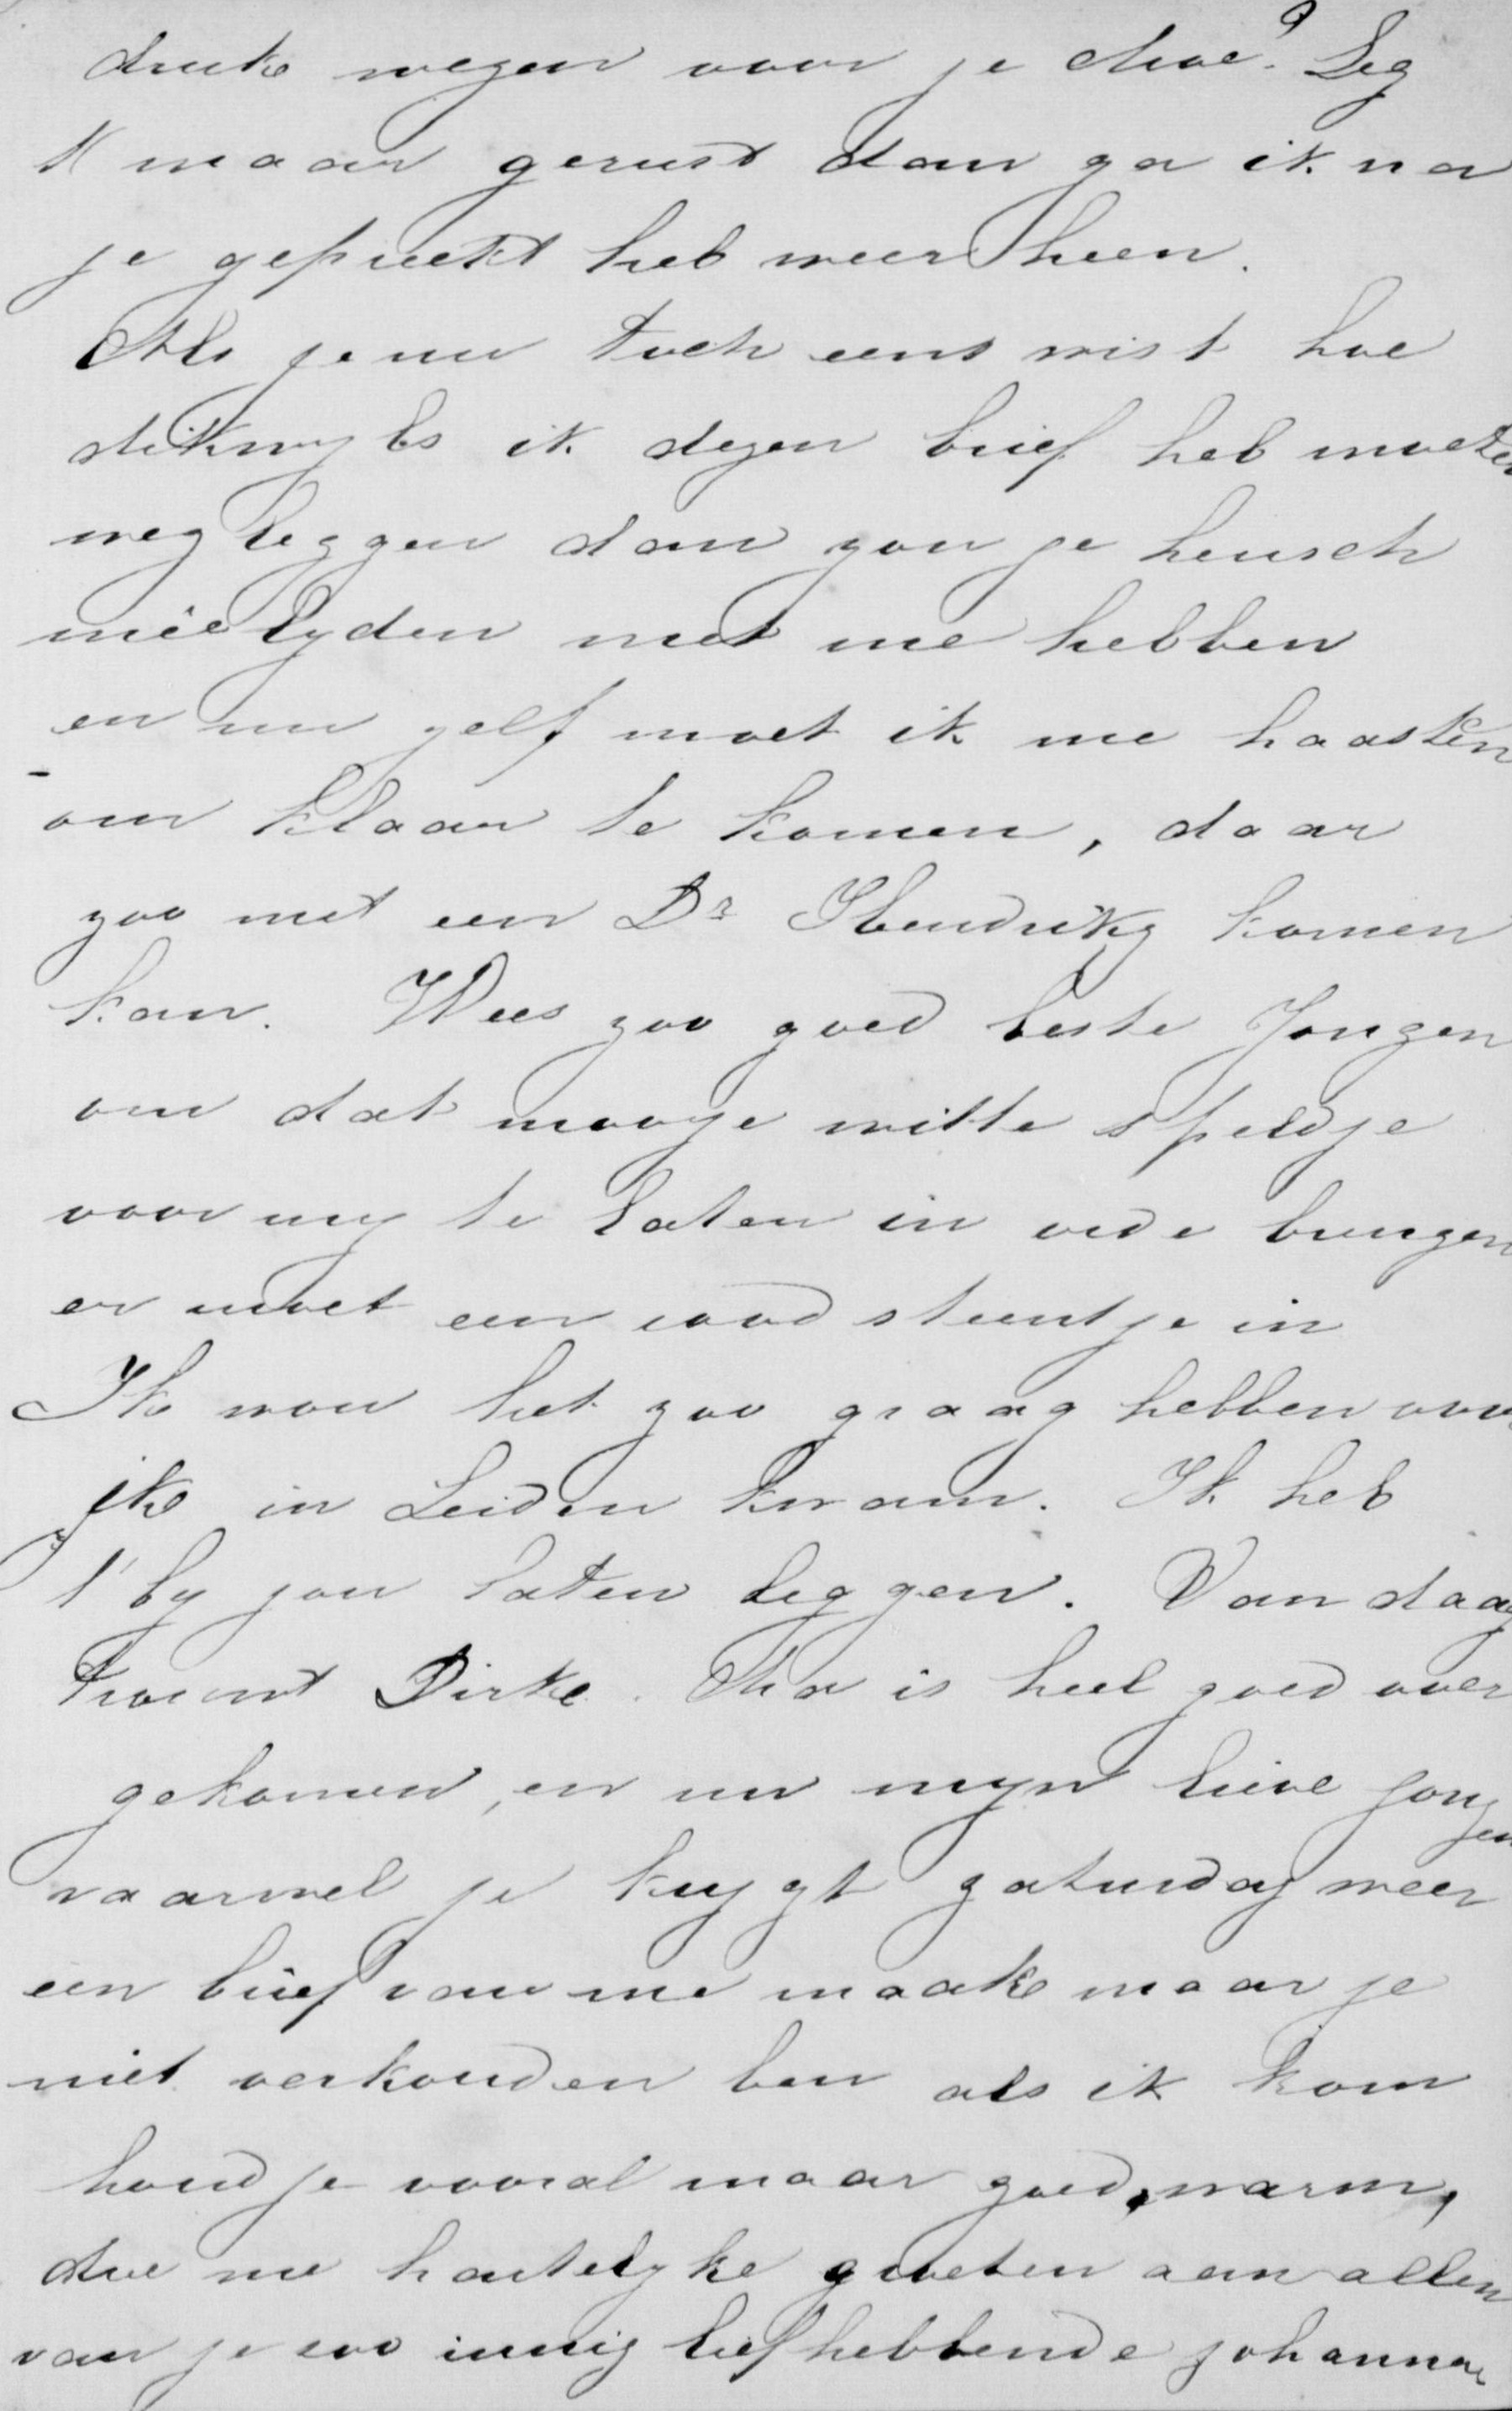 drukte wegen voor je doe? Zeg
't maar gerust dan ga ik na
je gepreekt heb weer heen.
Als je nu toch eens wist hoe
dikwyls ik dezen brief heb moeten
wegleggen dan zou je heusch
meêlyden met me hebben
en nu zelf moet ik me haasten
om klaar te komen, daar
zoo met een Dr Hendrikz komen
kan. Wees zoo goed beste Jongen
om dat mooye witte speldje
voor my te laten in orde brengen
er moet een rood steentje in
Ik wou het zoo graag hebben voor
ik in Leiden kwam. Ik heb
't by jou laten leggen. Van daag
komt Dirk. is heel goed over
gekomen, en nu myn lieve jongen
vaarwel je krygt zaturdag weer
een brief van me maak maar je
niet verkouden ben als ik kom
houd je vooral maar goed, warm,
doe me hartelyke groeten aan allen
van je zoo innig liefhebbende Johanna